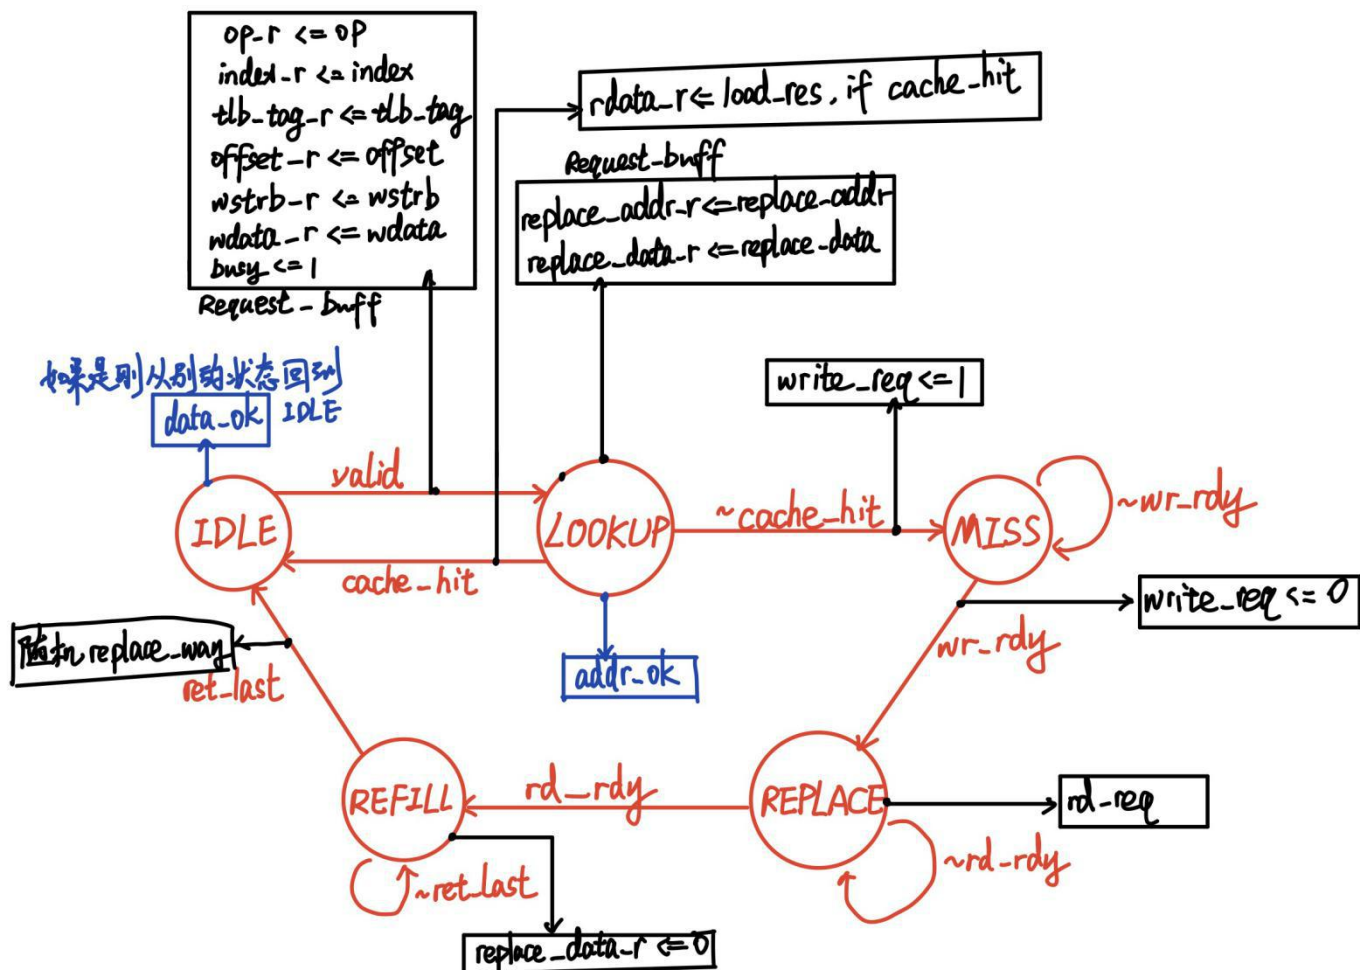 op_r <= op
index_r <= index
tlb_tag_r <= tlb_tag
offset_r <= offset
wstrb_r <= wstrb
wdata_r <= wdata
busy <= 1
Request_buff
rdata_r <= load_res, if cache_hit
Request_buff
replace_addr_r <= replace_addr
replace_data_r <= replace_data
如果是刚从别的状态回到
IDLE
data_ok
write_req <= 1
valid
IDLE
LOOKUP
~cache_hit
MISS
~wr_rdy
cache_hit
write_req <= 0
随机replace_way
ret_last
addr_ok
wr_rdy
REFILL
rd_rdy
REPLACE
rd_req
~ret_last
~rd_rdy
replace_data_r <= 0